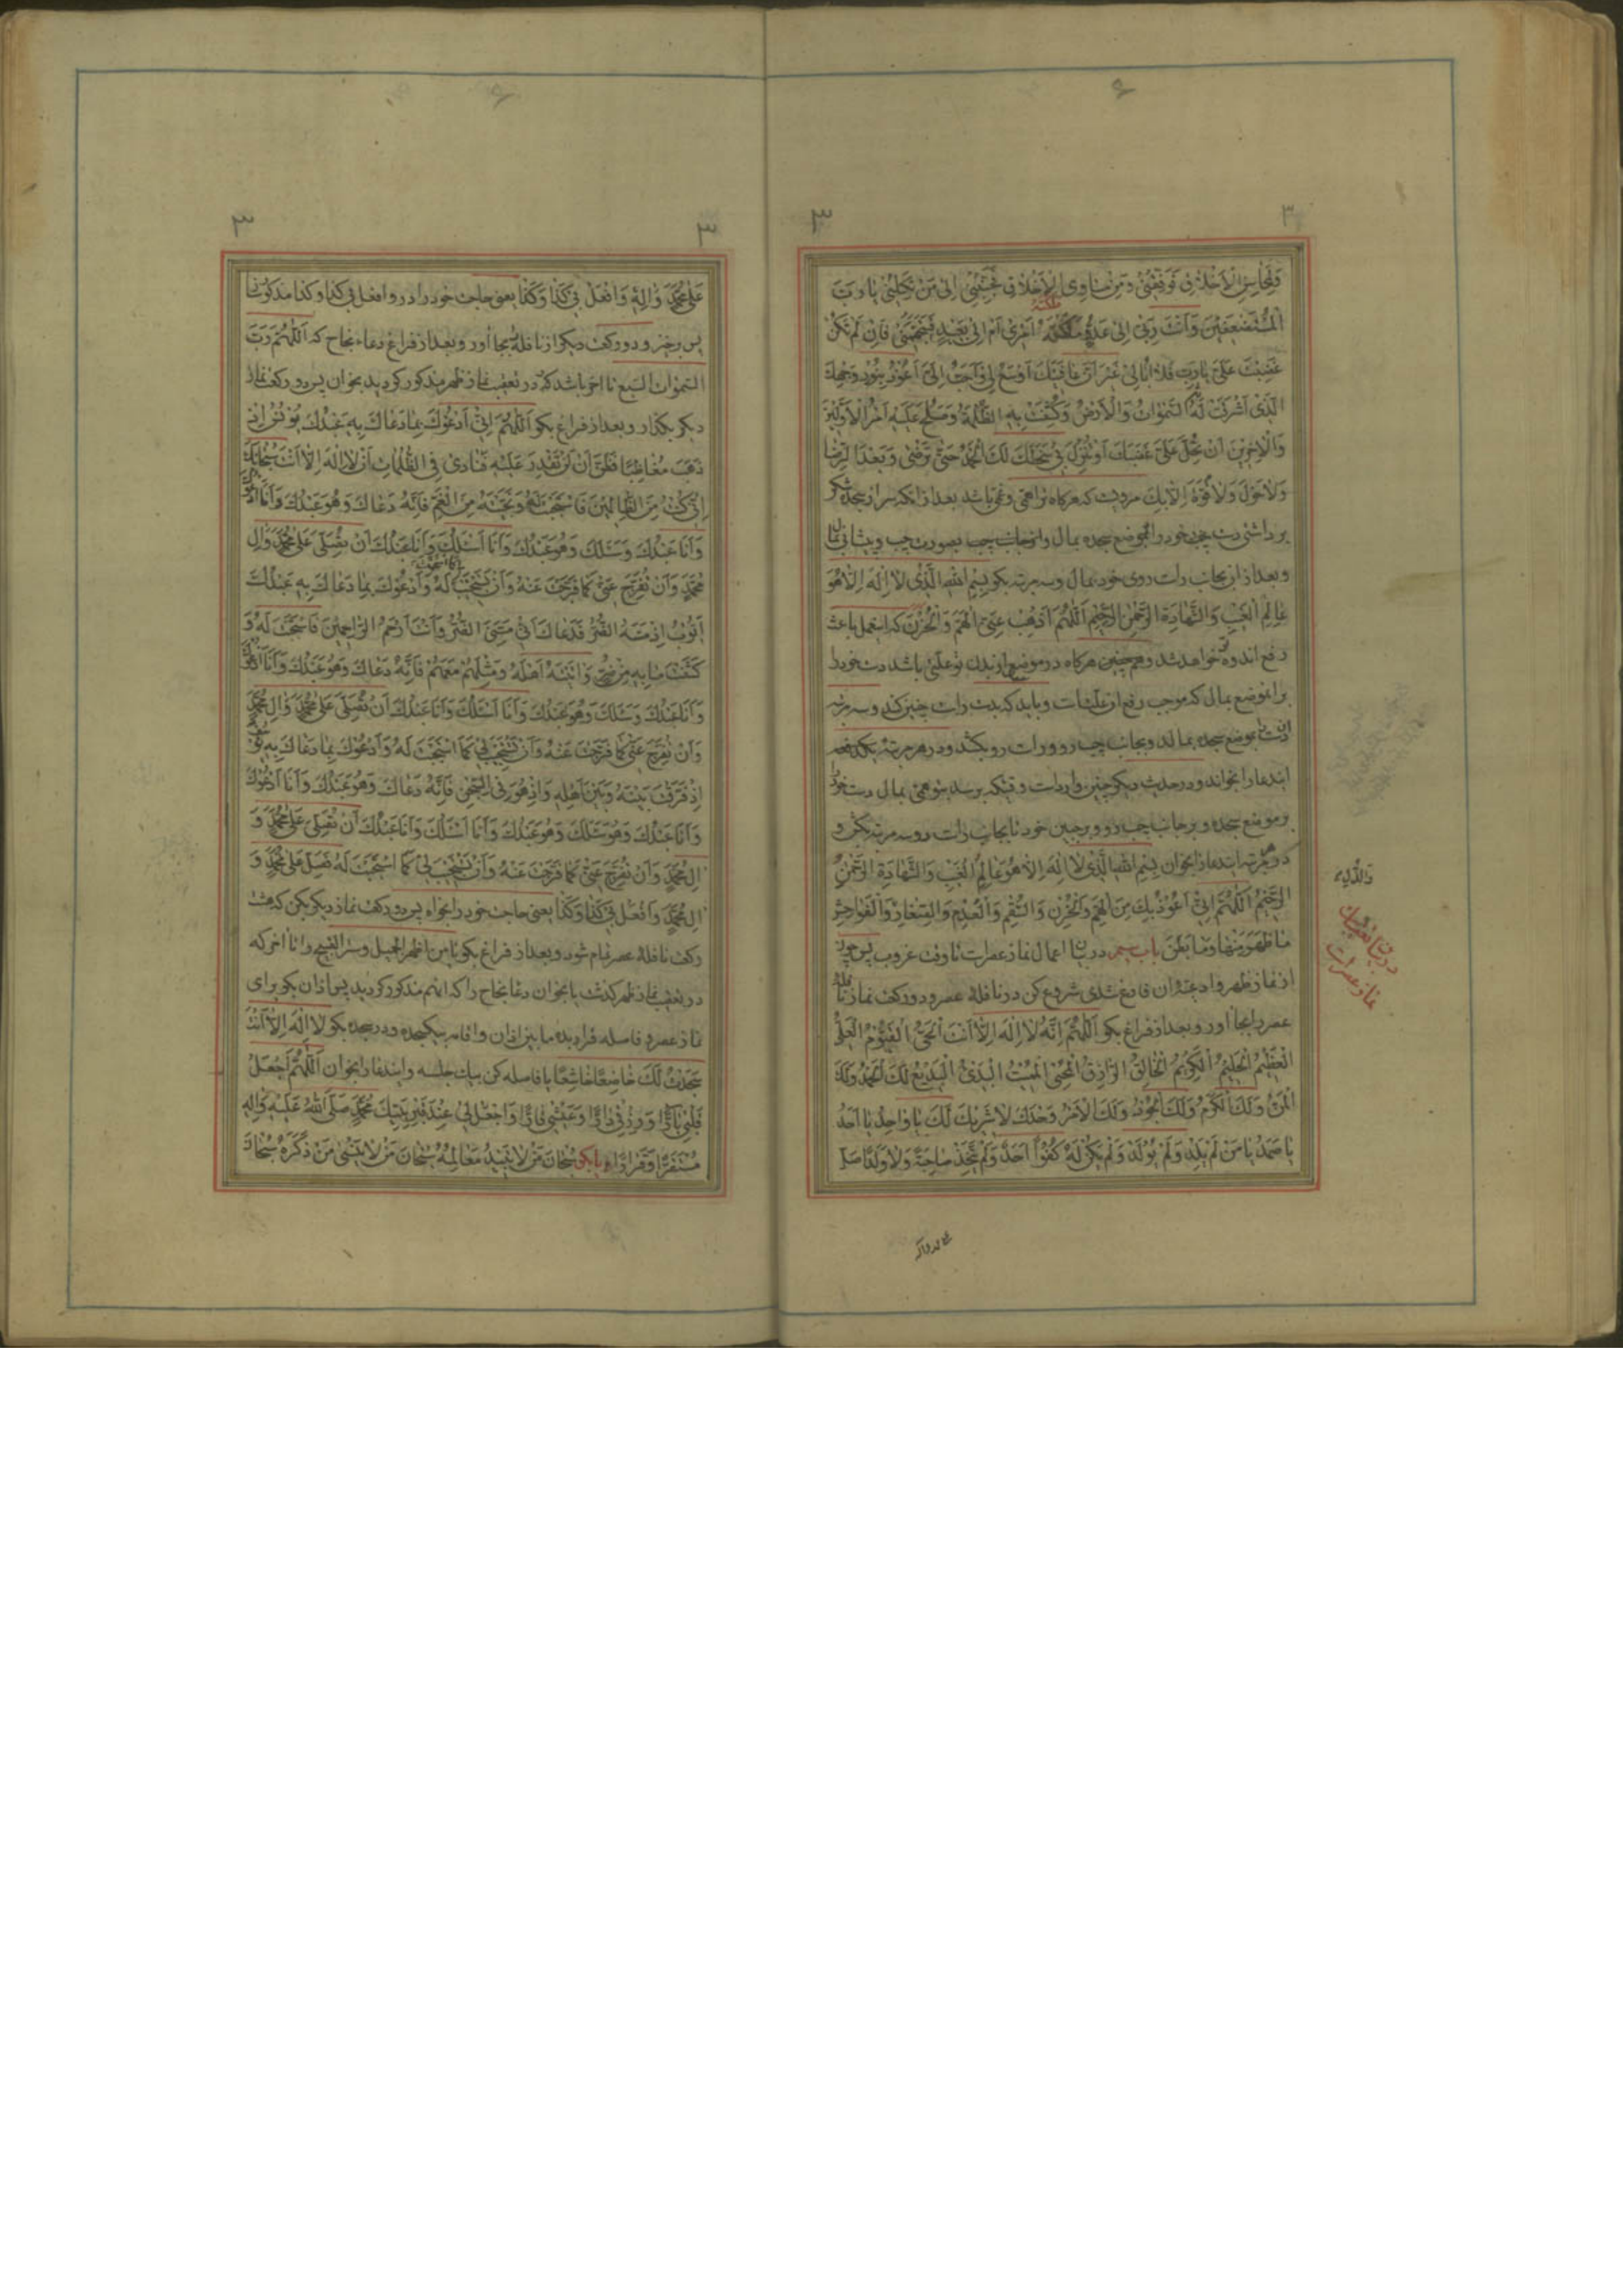 وَلِمَحاسِنِ الْاَخْلاقِ فَوَفِّقْنی وَمِنْ مَساوِی الْاَخْلاقِ فَجَنِّبْنی اِلی مَنْ تَکِلُنی یا رَبَّ
الْمُسْتَضْعَفینَ وَاَنْتَ رَبّی اِلی عَدُوٍّ مَلَّکْتَهُ اَمْری اَمْ اِلی بَعیدٍ فَیَتَجَهَّمَنی فَاِنْ لَمْ تَکُنْ
غَضِبْتَ عَلَیَّ یا رَبِّ فَلا اُبالی غَیْرَ اَنَّ عافِیَتَكَ اَوْسَعُ لی وَاَحَبُّ اِلَیَّ اَعُوذُ بِنُورِ وَجْهِكَ
الَّذی اَشْرَقَتْ لَهُ السَّمٰوَاتُ وَالْاَرْضُ وَکُشِفَتْ بِهِ الظُّلْمَةُ وَصَلُحَ عَلَیْهِ اَمْرُ الْاَوَّلینَ
وَالْاٰخِرینَ اَنْ تَحِلَّ عَلَیَّ غَضَبُكَ اَوْ تُنْزِلَ بی سَخَطَكَ لَكَ الْحَمْدُ حَتّی تَرْضی وَبَعْدَ الرِّضا
وَلا حَوْلَ وَلا قُوَّةَ اِلّا بِكَ مرویست که هرگاه ترا همی و غمی باشد بعد از انکه سر از سجده شکر
برداشتی دست خود را بموضع سجده بمال و از جانب چپ بصورت چپ و پیشانی بمال
و بعد از ان بجانب راست روی خود بمال و سه مرتبه بکو بِسْمِ اللهِ الَّذی لا اِلٰهَ اِلّا هُوَ
عالِمُ الْغَیْبِ وَالشَّهادَةِ الرَّحْمٰنُ الرَّحیمُ اَللّٰهُمَّ اَذْهِبْ عَنّی الْهَمَّ وَالْحُزْنَ که این عمل باعث
رفع اندوه تو خواهد شد و همچنین هرکاه در موضع از بدن تو علتی باشد دست خود را
بر انموضع بمال که موجب رفع ان علتست و باید که بدست راست چنین کند و سه مرتبه
ان دست را بموضع سجده بمالد و بجانب چپ رو و راست رو بکشد و در هر مرتبه یکدفعه
ایندعا را بخواند و در حدیث دیکر چنین وارد است وقتیکه برسد بتو همی بمال دست خود را
بر موضع سجده و بر جانب چپ رو و بر جبین خود تا بجانب راست رو سه مرتبه بکش و
در هر مرتبه ایندعا را بخوان بِسْمِ اللهِ الَّذی لا اِلٰهَ اِلّا هُوَ عالِمُ الْغَیْبِ وَالشَّهادَةِ الرَّحْمٰنُ
الرَّحیمُ اَللّٰهُمَّ اِنّی اَعُوذُ بِكَ مِنَ الْهَمِّ وَالْحُزْنِ وَالسُّقْمِ وَالْعُدْمِ وَالصَّغارِ وَالْفَواحِشِ
ما ظَهَرَ مِنْها وَما بَطَنَ باب سیم در بیان اعمال نماز عصر است تا وقت غروب پس چون
از نماز ظهر و ادعیه ان فارغ شدی شروع کن در نافله عصر و دو رکعت نماز نافله
عصر را بجا اور و بعد از فراغ بکو اَللّٰهُمَّ اِنَّهُ لا اِلٰهَ اِلّا اَنْتَ الْحَیُّ الْقَیُّومُ الْعَلِیُّ
الْعَظیمُ الْحَلیمُ الْکَریمُ الْخالِقُ الرّازِقُ الْمُحْیِی الْمُمیتُ الْبَدیءُ الْبَدیعُ لَكَ الْحَمْدُ وَلَكَ
الْمَنُّ وَلَكَ الْکَرَمُ وَلَكَ الْجُودُ وَلَكَ الْاَمْرُ وَحْدَكَ لا شَریكَ لَكَ یا واحِدُ یا اَحَدُ
یا صَمَدُ یا مَنْ لَمْ یَلِدْ وَلَمْ یُولَدْ وَلَمْ یَکُنْ لَهُ کُفُواً اَحَدٌ وَلَمْ یَتَّخِذْ صاحِبَةً وَلا وَلَداً صَلِّ
در بیان تعقیبات
نماز عصر است
عَلی مُحَمَّدٍ وَاٰلِهِ وَافْعَلْ بی کَذا وَکَذا یعنی حاجت خود را در وافعل بی کذا و کذا مذکور نما
پس برخیز و دو رکعت دیکر از نافله را بجا اور و بعد از فراغ دعاء نجاح که اَللّٰهُمَّ رَبَّ
السَّمٰوَاتِ السَّبْعِ تا اخر باشد که در تعقیب نماز ظهر مذکور کردید بخوان پس دو رکعت نماز
دیکر بکذار و بعد از فراغ بکو اَللّٰهُمَّ اِنّی اَدْعُوكَ بِما دَعاكَ بِهِ عَبْدُكَ یُونُسُ اِذْ
ذَهَبَ مُغاضِبًا فَظَنَّ اَنْ لَنْ نَقْدِرَ عَلَیْهِ فَنادی فِی الظُّلُماتِ اَنْ لا اِلٰهَ اِلّا اَنْتَ سُبْحانَكَ
اِنّی کُنْتُ مِنَ الظّالِمینَ فَاسْتَجَبْتَ لَهُ وَنَجَّیْتَهُ مِنَ الْغَمِّ فَاِنَّهُ دَعاكَ وَهُوَ عَبْدُكَ وَاَنَا اَدْعُوكَ
وَاَنَا عَبْدُكَ وَسَئَلَكَ وَهُوَ عَبْدُكَ وَاَنَا اَسْئَلُكَ وَاَنَا عَبْدُكَ اَنْ تُصَلِّیَ عَلی مُحَمَّدٍ وَاٰلِ
مُحَمَّدٍ وَاَنْ تُفَرِّجَ عَنّی کَما فَرَّجْتَ عَنْهُ وَاَنْ تَسْتَجیبَ لی کَما اسْتَجَبْتَ لَهُ وَاَدْعُوكَ بِما دَعاكَ بِهِ عَبْدُكَ
اَیُّوبُ اِذْ مَسَّهُ الضُّرُّ فَدَعاكَ اَنّی مَسَّنِیَ الضُّرُّ وَاَنْتَ اَرْحَمُ الرّاحِمینَ فَاسْتَجَبْتَ لَهُ وَ
کَشَفْتَ ما بِهِ مِنْ ضُرٍّ وَاٰتَیْتَهُ اَهْلَهُ وَمِثْلَهُمْ مَعَهُمْ فَاِنَّهُ دَعاكَ وَهُوَ عَبْدُكَ وَاَنَا اَدْعُوكَ
وَاَنَا عَبْدُكَ وَسَئَلَكَ وَهُوَ عَبْدُكَ وَاَنَا اَسْئَلُكَ وَاَنَا عَبْدُكَ اَنْ تُصَلِّیَ عَلی مُحَمَّدٍ وَاٰلِ مُحَمَّدٍ
وَاَنْ تُفَرِّجَ عَنّی کَما فَرَّجْتَ عَنْهُ وَاَنْ تَسْتَجیبَ لی کَما اسْتَجَبْتَ لَهُ وَاَدْعُوكَ بِما دَعاكَ بِهِ یُوسُفُ
اِذْ فَرَّقْتَ بَیْنَهُ وَبَیْنَ اَهْلِهِ وَاِذْ هُوَ فِی السِّجْنِ فَاِنَّهُ دَعاكَ وَهُوَ عَبْدُكَ وَاَنَا اَدْعُوكَ
وَاَنَا عَبْدُكَ وَهُوَ سَئَلَكَ وَهُوَ عَبْدُكَ وَاَنَا اَسْئَلُكَ وَاَنَا عَبْدُكَ اَنْ تُصَلِّیَ عَلی مُحَمَّدٍ وَ
اٰلِ مُحَمَّدٍ وَاَنْ تُفَرِّجَ عَنّی کَما فَرَّجْتَ عَنْهُ وَاَنْ تَسْتَجیبَ لی کَما اسْتَجَبْتَ لَهُ فَصَلِّ عَلی مُحَمَّدٍ وَ
اٰلِ مُحَمَّدٍ وَافْعَلْ بی کَذا وَکَذا یعنی حاجت خود را بخواه پس دو رکعت نماز دیکر بکن که هشت
رکعت نافله عصر تمام شود و بعد از فراغ بکو یا من اظهر الجمیل و ستر القبیح را تا اخر که
در تعقیب نماز ظهر کذشت یا بخوان دعا نجاح را که انهم مذکور کردید پس اذان بکو برای
نماز عصر و فاصله قرار بده مابین اذان و اقامه بیکسجده و در سجده بکو لا اِلٰهَ اِلّا اَنْتَ
سَجَدْتُ لَكَ خاضِعًا خاشِعًا یا فاصله کن بیك جلسه و ایندعا را بخوان اَللّٰهُمَّ اجْعَلْ
قَلْبی بارًّا وَرِزْقی دارًّا وَعَیْشی قارًّا وَاجْعَلْ لی عِنْدَ قَبْرِ نَبِیِّكَ مُحَمَّدٍ صَلَّی اللهُ عَلَیْهِ وَاٰلِهِ
مُسْتَقَرًّا وَقَرارًا یا بکو سُبْحانَ مَنْ لا تَبیدُ مَعالِمُهُ سُبْحانَ مَنْ لا یَنْسٰی مَنْ ذَکَرَهُ سُبْحانَ